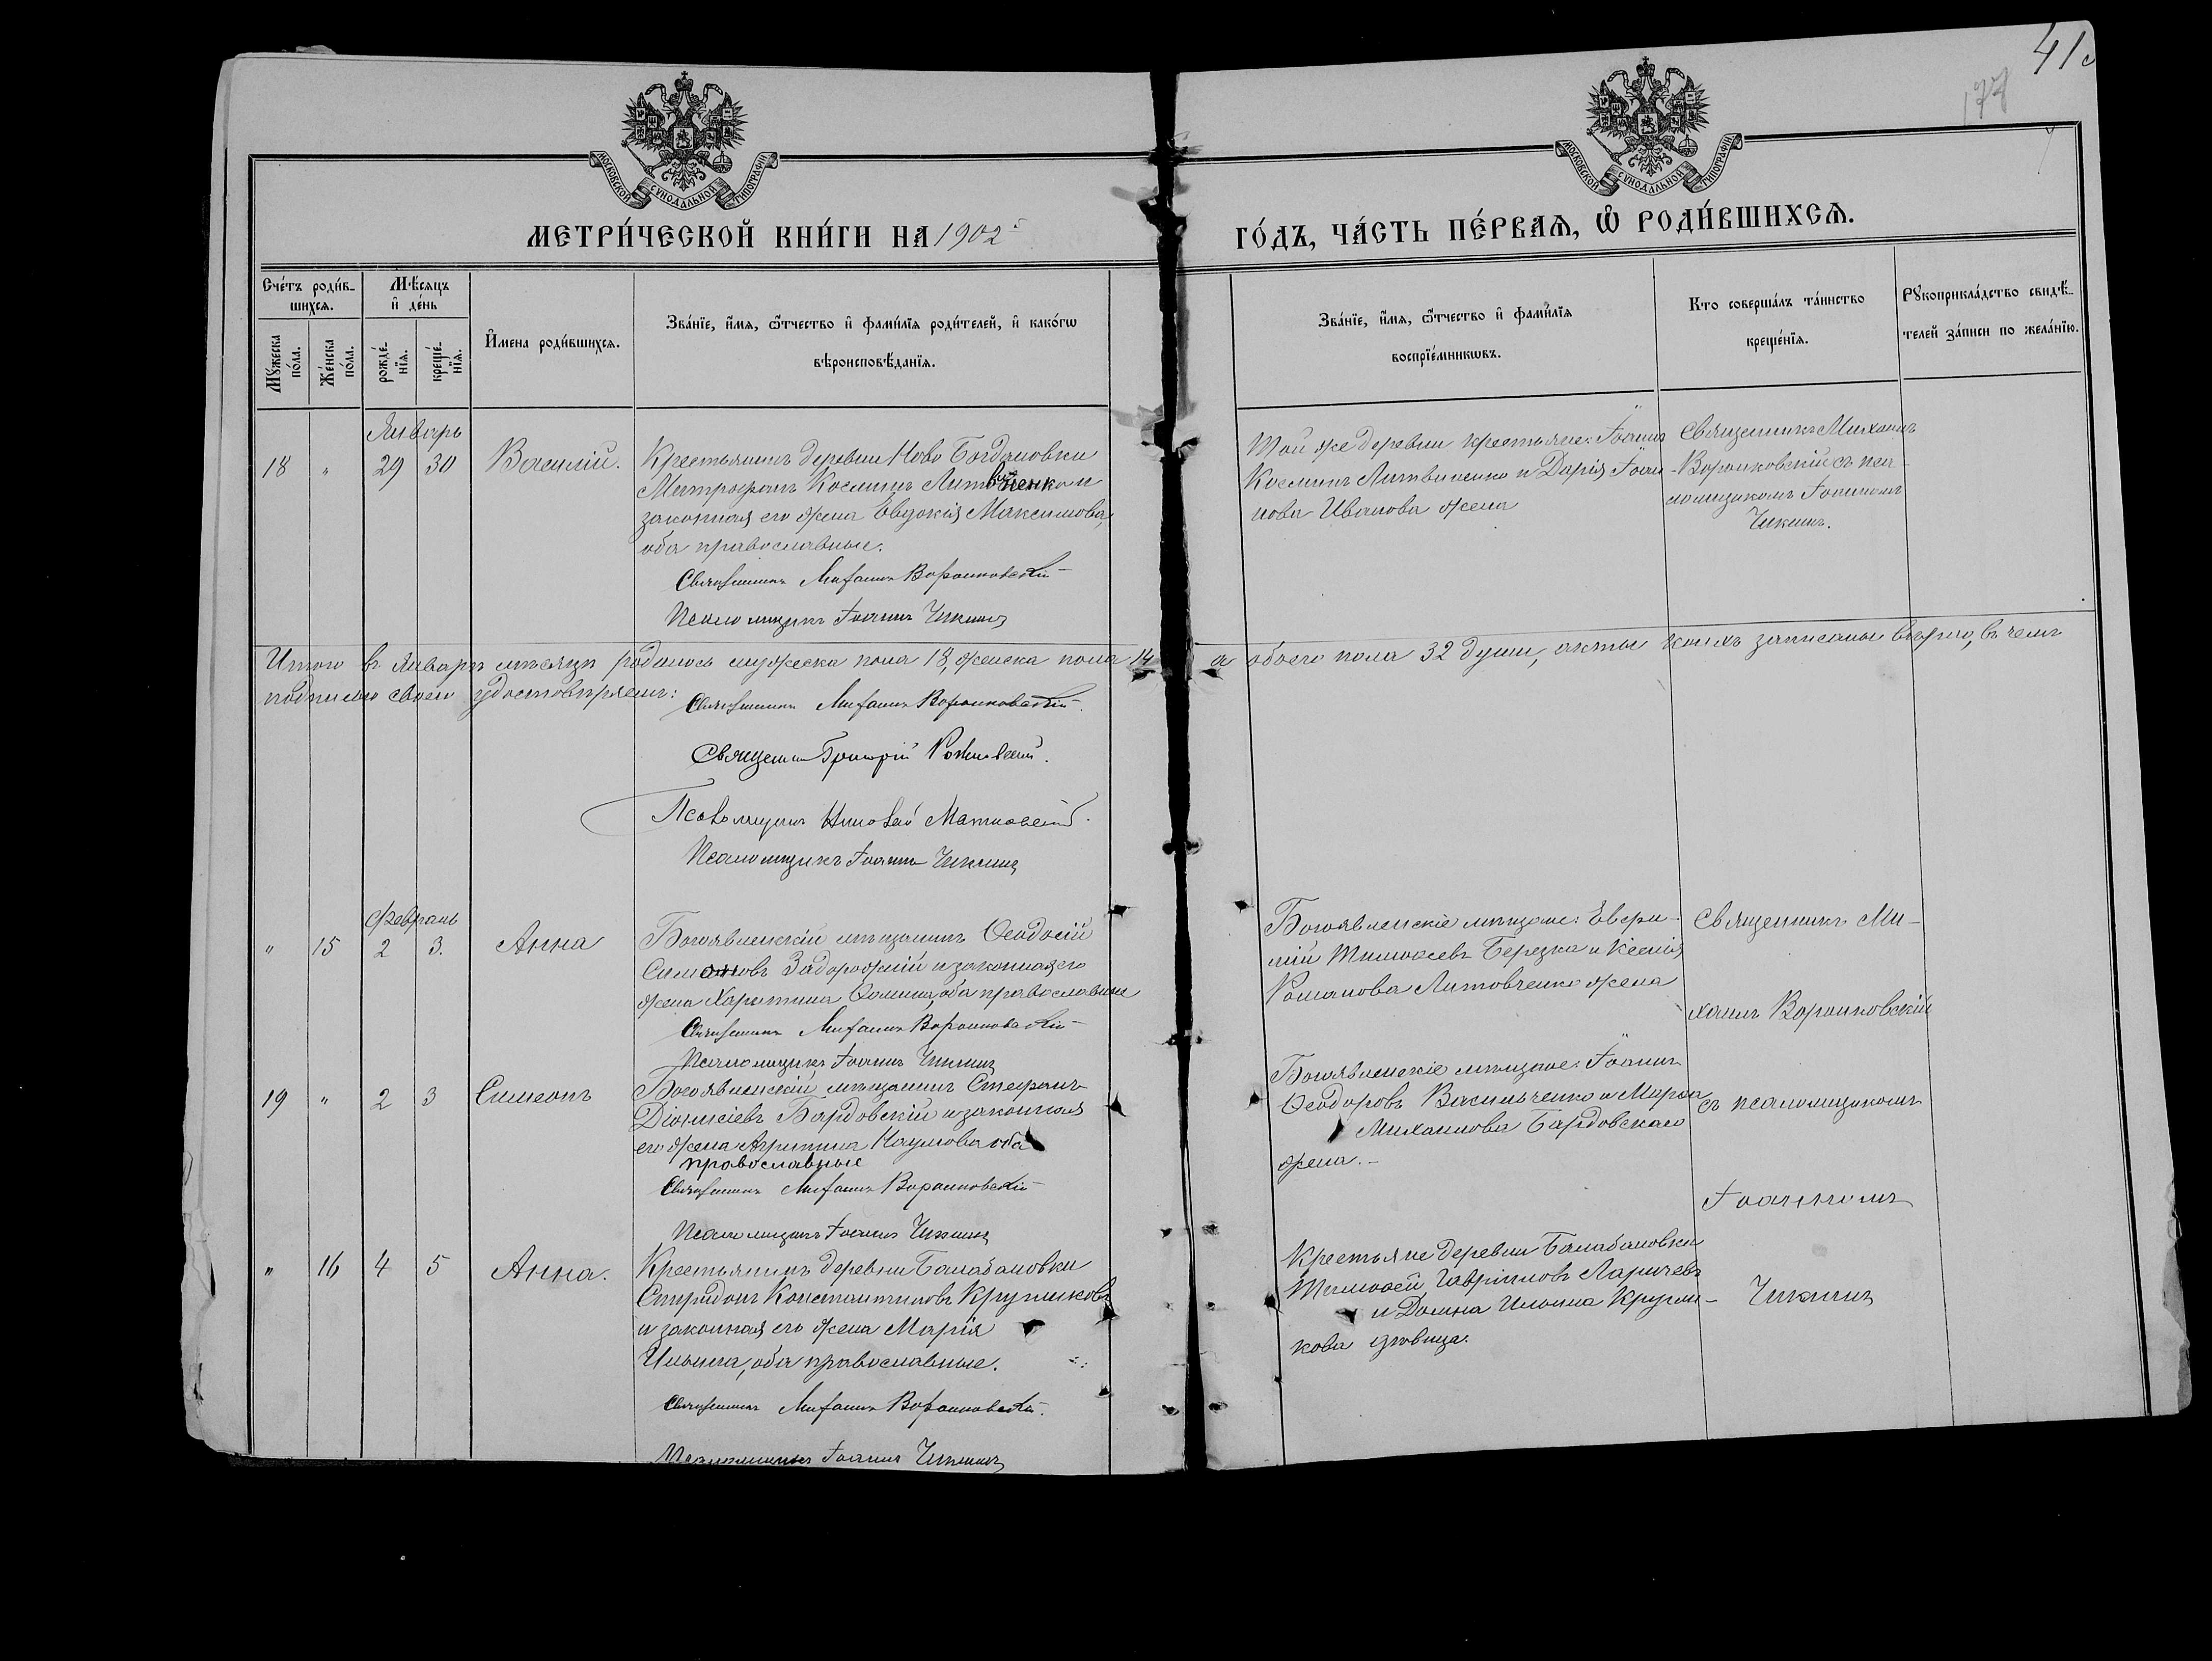 41
177
МОСКОВСКОЙ СУНОДАЛЬНОЙ ТИПОГРАФІИ
МОСКОВСКОЙ СУНОДАЛЬНОЙ ТИПОГРАФІИ
МЕТРИ́ЧЕСКОЙ КНИ́ГИ НА 1902
ГО́ДЪ, ЧА́СТЬ ПЕ́РВАѦ, Ѡ҆ РОДИ́ВШИХСѦ.
Сче́тъ роди́в-
шихсѧ.
Мꙋ́жеска
по́ла.
Же́нска
по́ла.
Мѣ́сѧцъ
и҆ де́нь
рожде́-
нїѧ.
креще́-
нїѧ.
И҆мена роди́вшихсѧ.
Зва́нїе, и҆́мѧ, ѻ҆́тчество и҆ фами́лїѧ роди́телей, и҆ како́гѡ
вѣроисповѣ́данїѧ.
Зва́нїе, и҆́мѧ, ѻ҆́тчество и҆ фами́лїѧ
воспрїе́мникѡвъ.
Кто соверша́лъ та́инство
креще́нїѧ.
Рꙋкоприкла́дство свидѣ́-
телей за́писи по жела́нїю.
Январь
18 " 29 30 Василій.
Крестьянинъ деревни Ново Богдановки
Митрофанъ Косминъ Литвиненко и
законная его жена Евдокія Максимова,
оба православные.
Священникъ Михаилъ Воронковскій
Псаломщикъ Іоаннъ Чикинъ
Той же деревни крестьяне: Іоаннъ
Косминъ Литвиненко и Дарія Іоан-
нова Иванова жена
Священникъ Михаилъ
Воронковскій съ пса-
ломщикомъ Іоанномъ
Чикинъ.
Итого въ Январѣ мѣсяцѣ родилось мужеска пола 18, женска пола 14 а обоего пола 32 души, акты коихъ записаны вѣрно, въ чемъ
подписью своею удостовѣряемъ:
Священникъ Михаилъ Воронковскій.
Священникъ Григорій
Псаломщикъ Николай
Псаломщикъ Іоаннъ Чикинъ
Февраль
" 15 2 3. Анна
Богоявленскій мѣщанинъ Ѳеодосій
Симоновъ Задорожній и законная его
жена Харитина Ѳомина, оба православные
Священникъ Михаилъ Воронковскій
Псаломщикъ Іоаннъ Чикинъ
Богоявленскіе мѣщане: Евѳи-
мій Тимоѳеевъ Березка и Ксенія
Романова Литовченко жена
Священникъ Ми-
хаилъ Воронковскій
19 " 2 3 Симеонъ
Богоявленскій мѣщанинъ Стефанъ
Діонисіевъ Бардовскій и законная
его жена Агрипина Наумова оба
православные
Священникъ Михаилъ Воронковскій
Псаломщикъ Іоаннъ Чикинъ
Богоявленскіе мѣщане: Іоаннъ
Ѳеодоровъ Васильченко и Марѳа
Михаилова Бардовскаго
жена.
съ псаломщикомъ
Іоанномъ
" 16 4 5 Анна.
Крестьянинъ деревни Балабановки
Спиридонъ Константиновъ Кругликовъ
и законная его жена Марія
Ильина, оба православные.
Священникъ Михаилъ Воронковскій.
Псаломщикъ Іоаннъ Чикинъ
Крестьяне деревни Балабановки
Тимоѳей Гавріиловъ Ларичевъ
и Домна Ильина Кругли-
кова вдовица.
Чикинъ